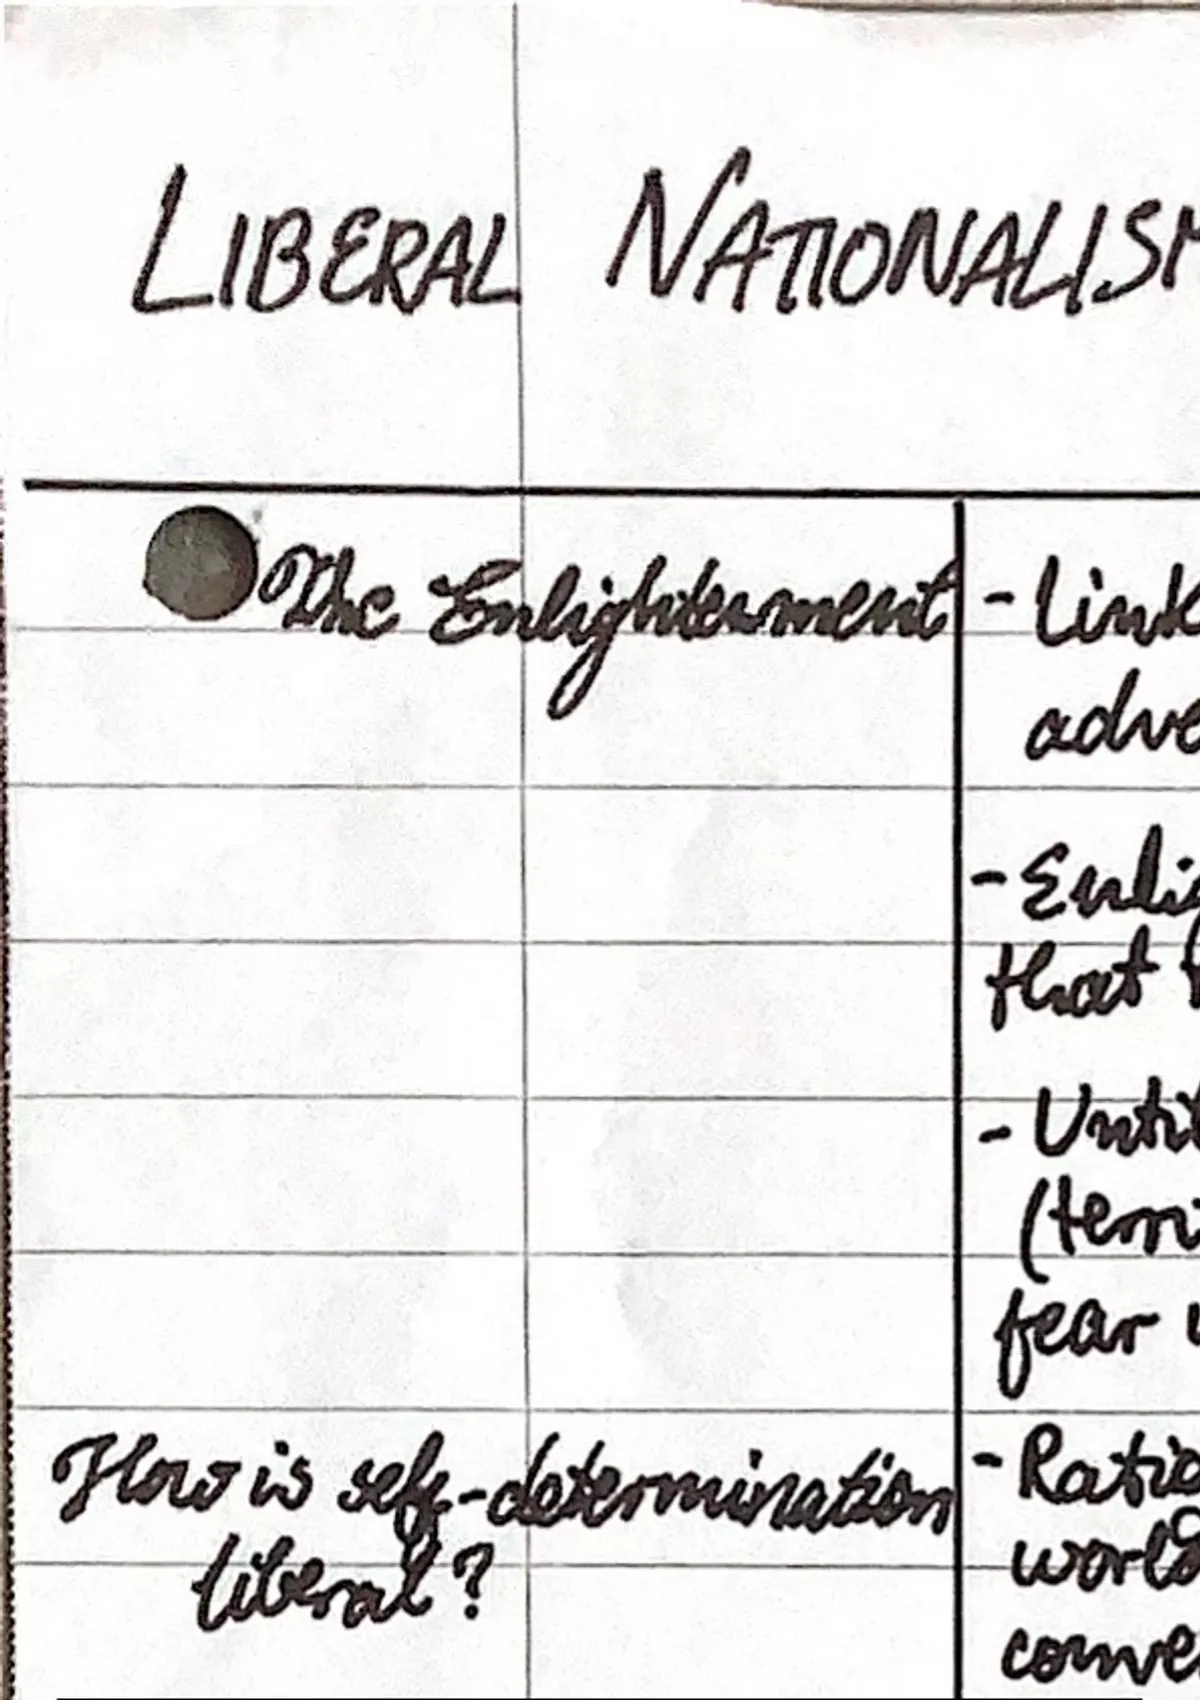 LIBERAL NATIONALISM
The Enlightenment
- Link
adve
- Enlig
that
- Until
(terri
fear
How is self-determination
liberal?
- Ratio
world
conve